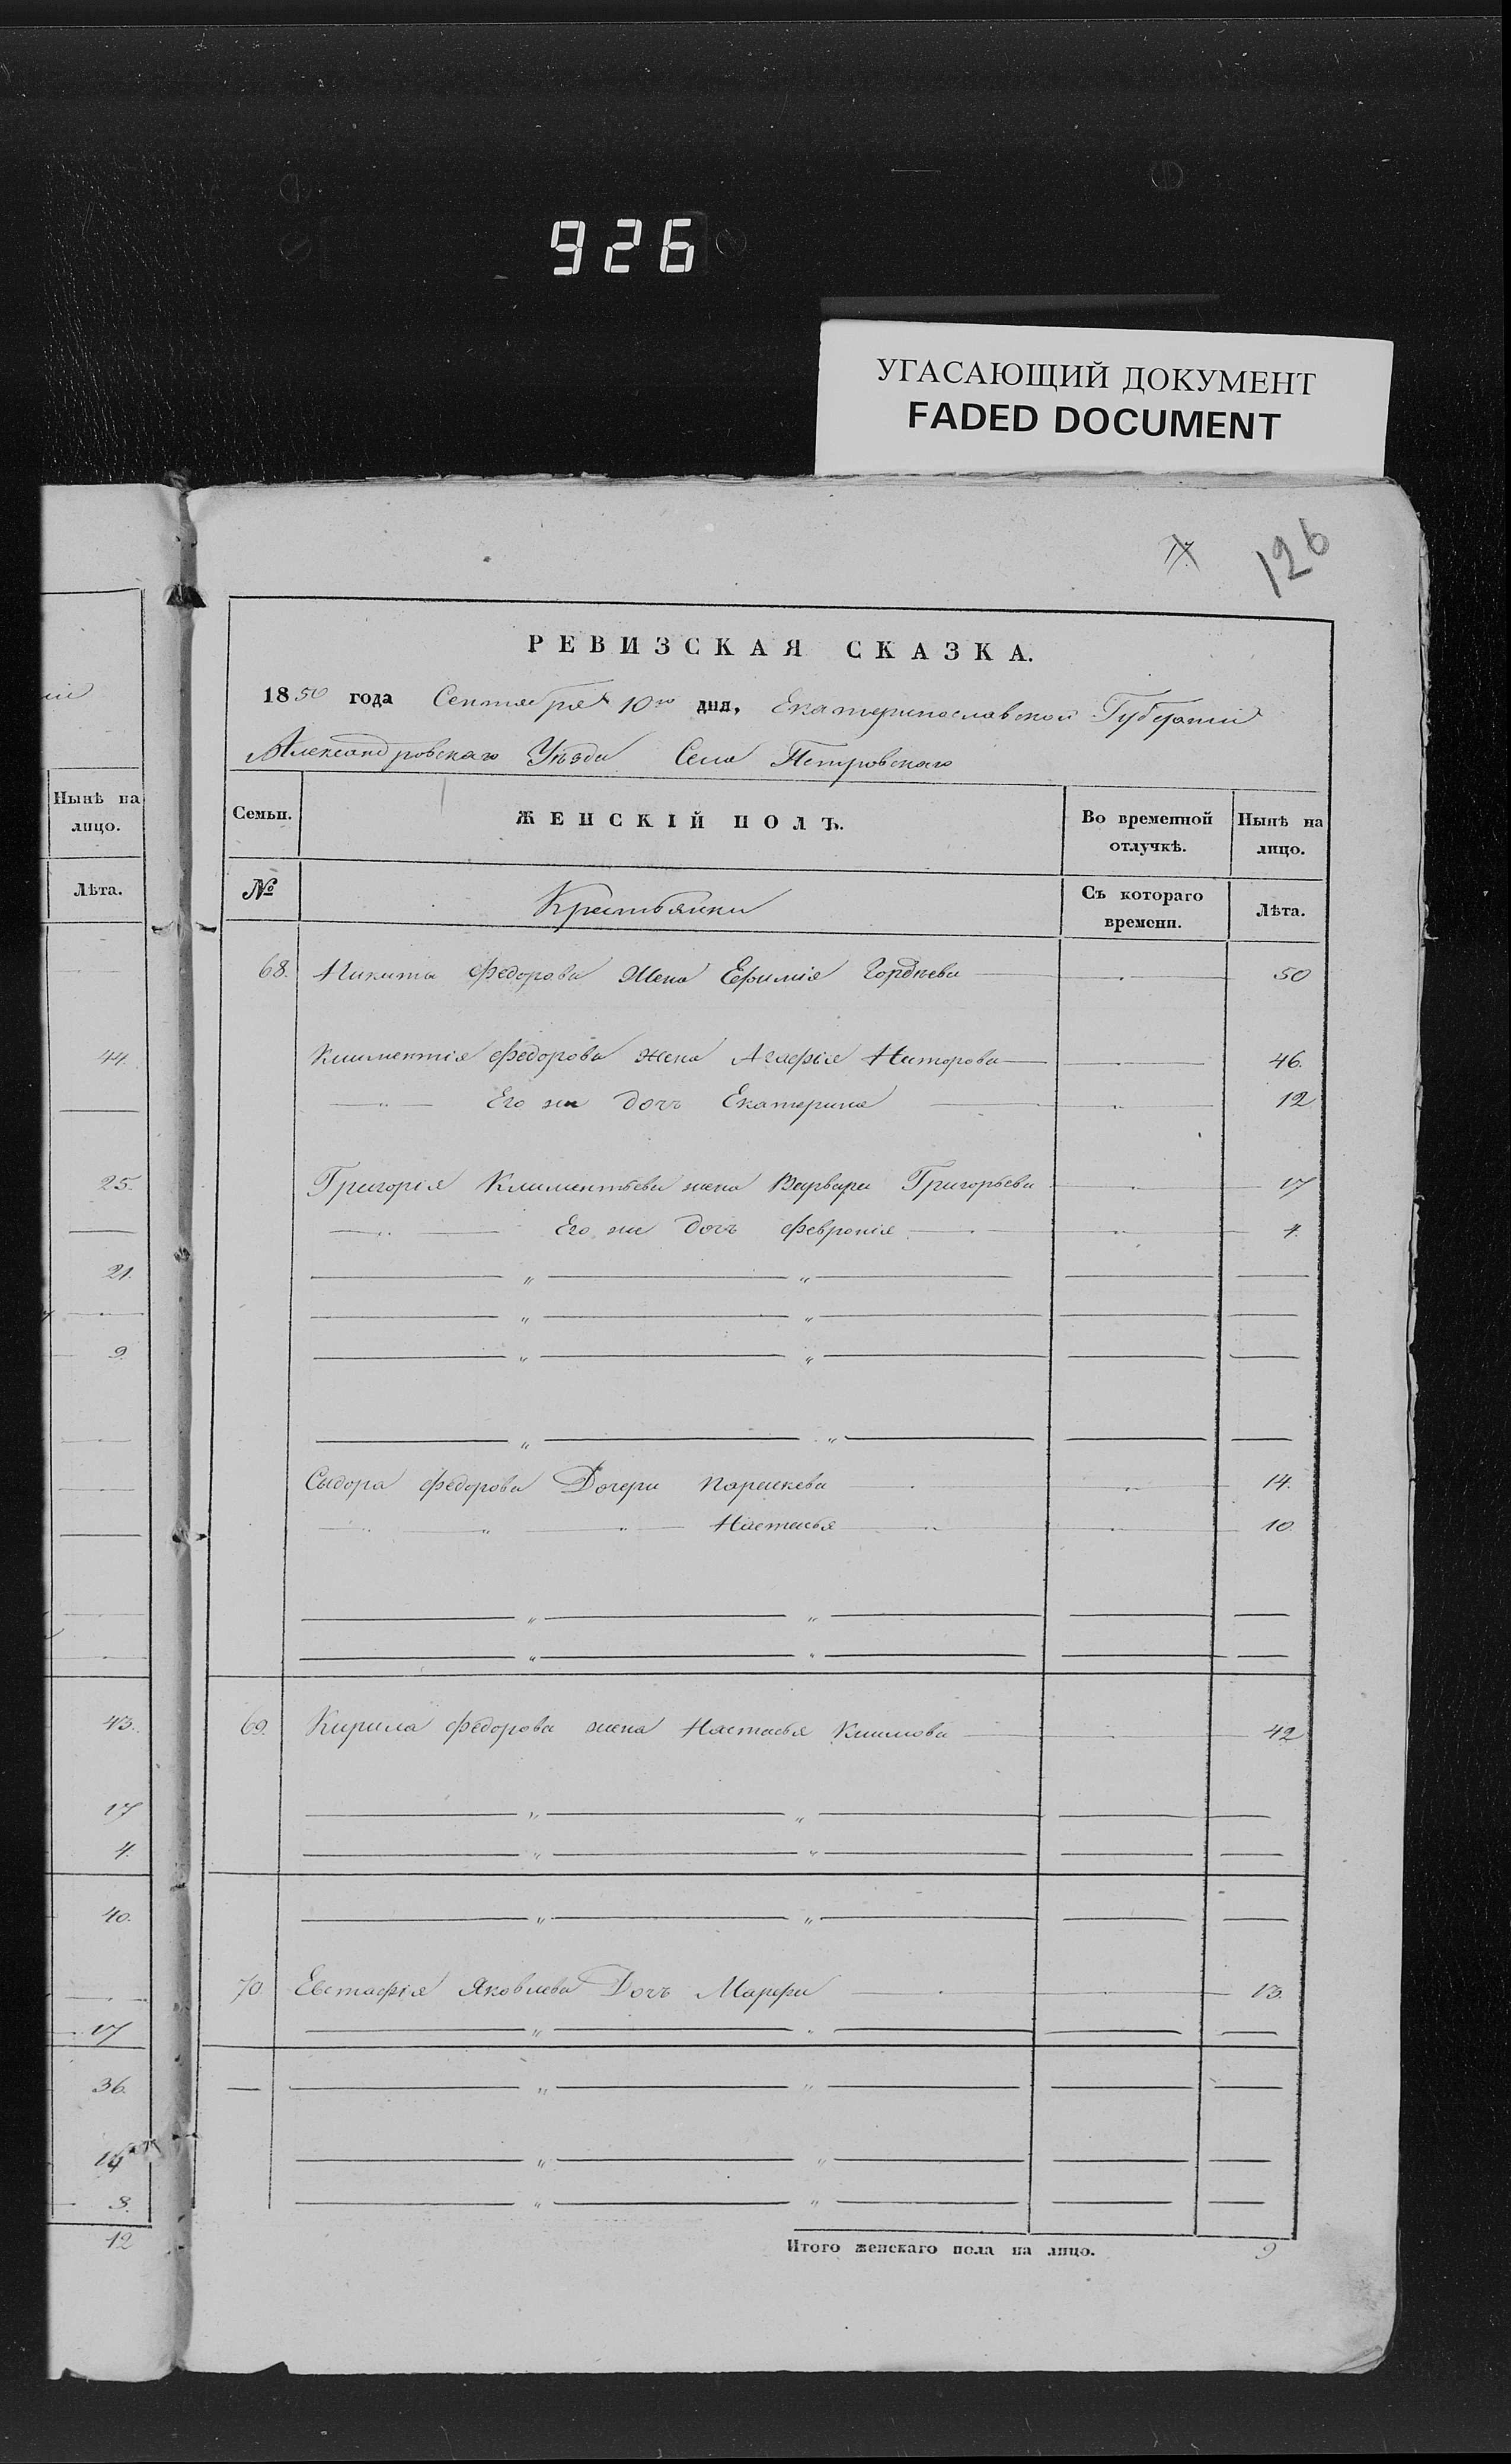 926
УГАСАЮЩИЙ ДОКУМЕНТ
FADED DOCUMENT
17
126
РЕВИЗСКАЯ СКАЗКА.
1850 года Сентября 10го дня, Екатеринославской Губернии
Александровскаго Уѣзда Села Петровскаго
Нынѣ на лицо.
Лѣта.
44.
25.
21.
9.
43.
17
4.
40.
17
36.
14
8.
12
Семьи. ЖЕНСКІЙ ПОЛЪ. Во временной отлучкѣ. Нынѣ на лицо.
№ Крестьянки Съ котораго времени. Лѣта.
68. Никиты Федорова Жена Ефимія Гордѣева 50
Климентія Федорова жена Агафія 46.
Его же дочь Екатерина 12
Григорія Климентьева жена Варвара Григорьева 17
Его же дочь Февронія 4.
Сыдора Федорова Дочери Параскева 14.
Настасья 10.
69. Кирила Федорова жена Настасья Климова 42
70. Евстафія Яковлева Дочь Марфа 13.
Итого женскаго пола на лицо. 9